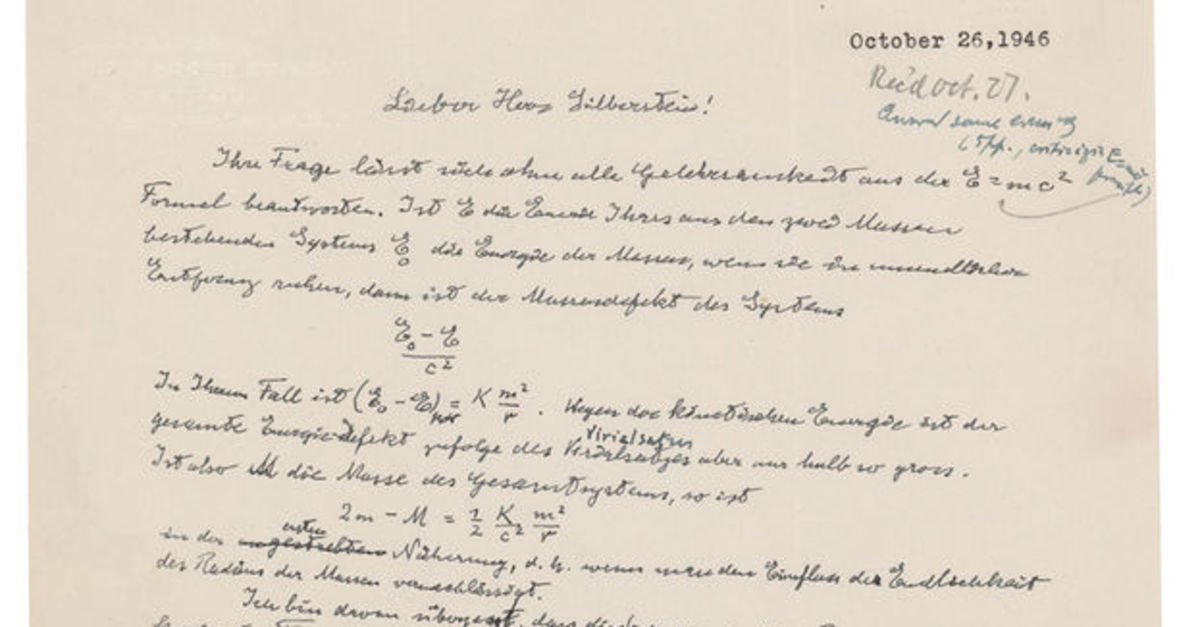 October 26,1946
Rec'd Oct. 27.
same evening
(5pp., criticizing E=mc²
formula)
Lieber Herr Silberstein!
Ihre Frage lässt sich ohne alle Gelehrsamkeit aus der E = mc²
Formel beantworten. Ist E die Energie Ihres aus den zwei Massen
bestehenden Systems E₀ die Energie der Massen, wenn sie in unendlicher
Entfernung ruhen, dann ist der Massendefekt des Systems
E₀ - E
c²
In Ihrem Fall ist (E₀ - E) = K m²/r . Wegen der kinetischen Energie ist der
Virialsatzes
gesamte Energie-Defekt zufolge des Virialsatzes aber nur halb so gross.
Ist also M die Masse des Gesamtsystems, so ist
2m - M = 1/2 K/c² m²/r
ersten
in der Näherung, d.h. wenn man den Einfluss der Endlichkeit
des Radius der Massen vernachlässigt.
Ich bin davon überzeugt, dass